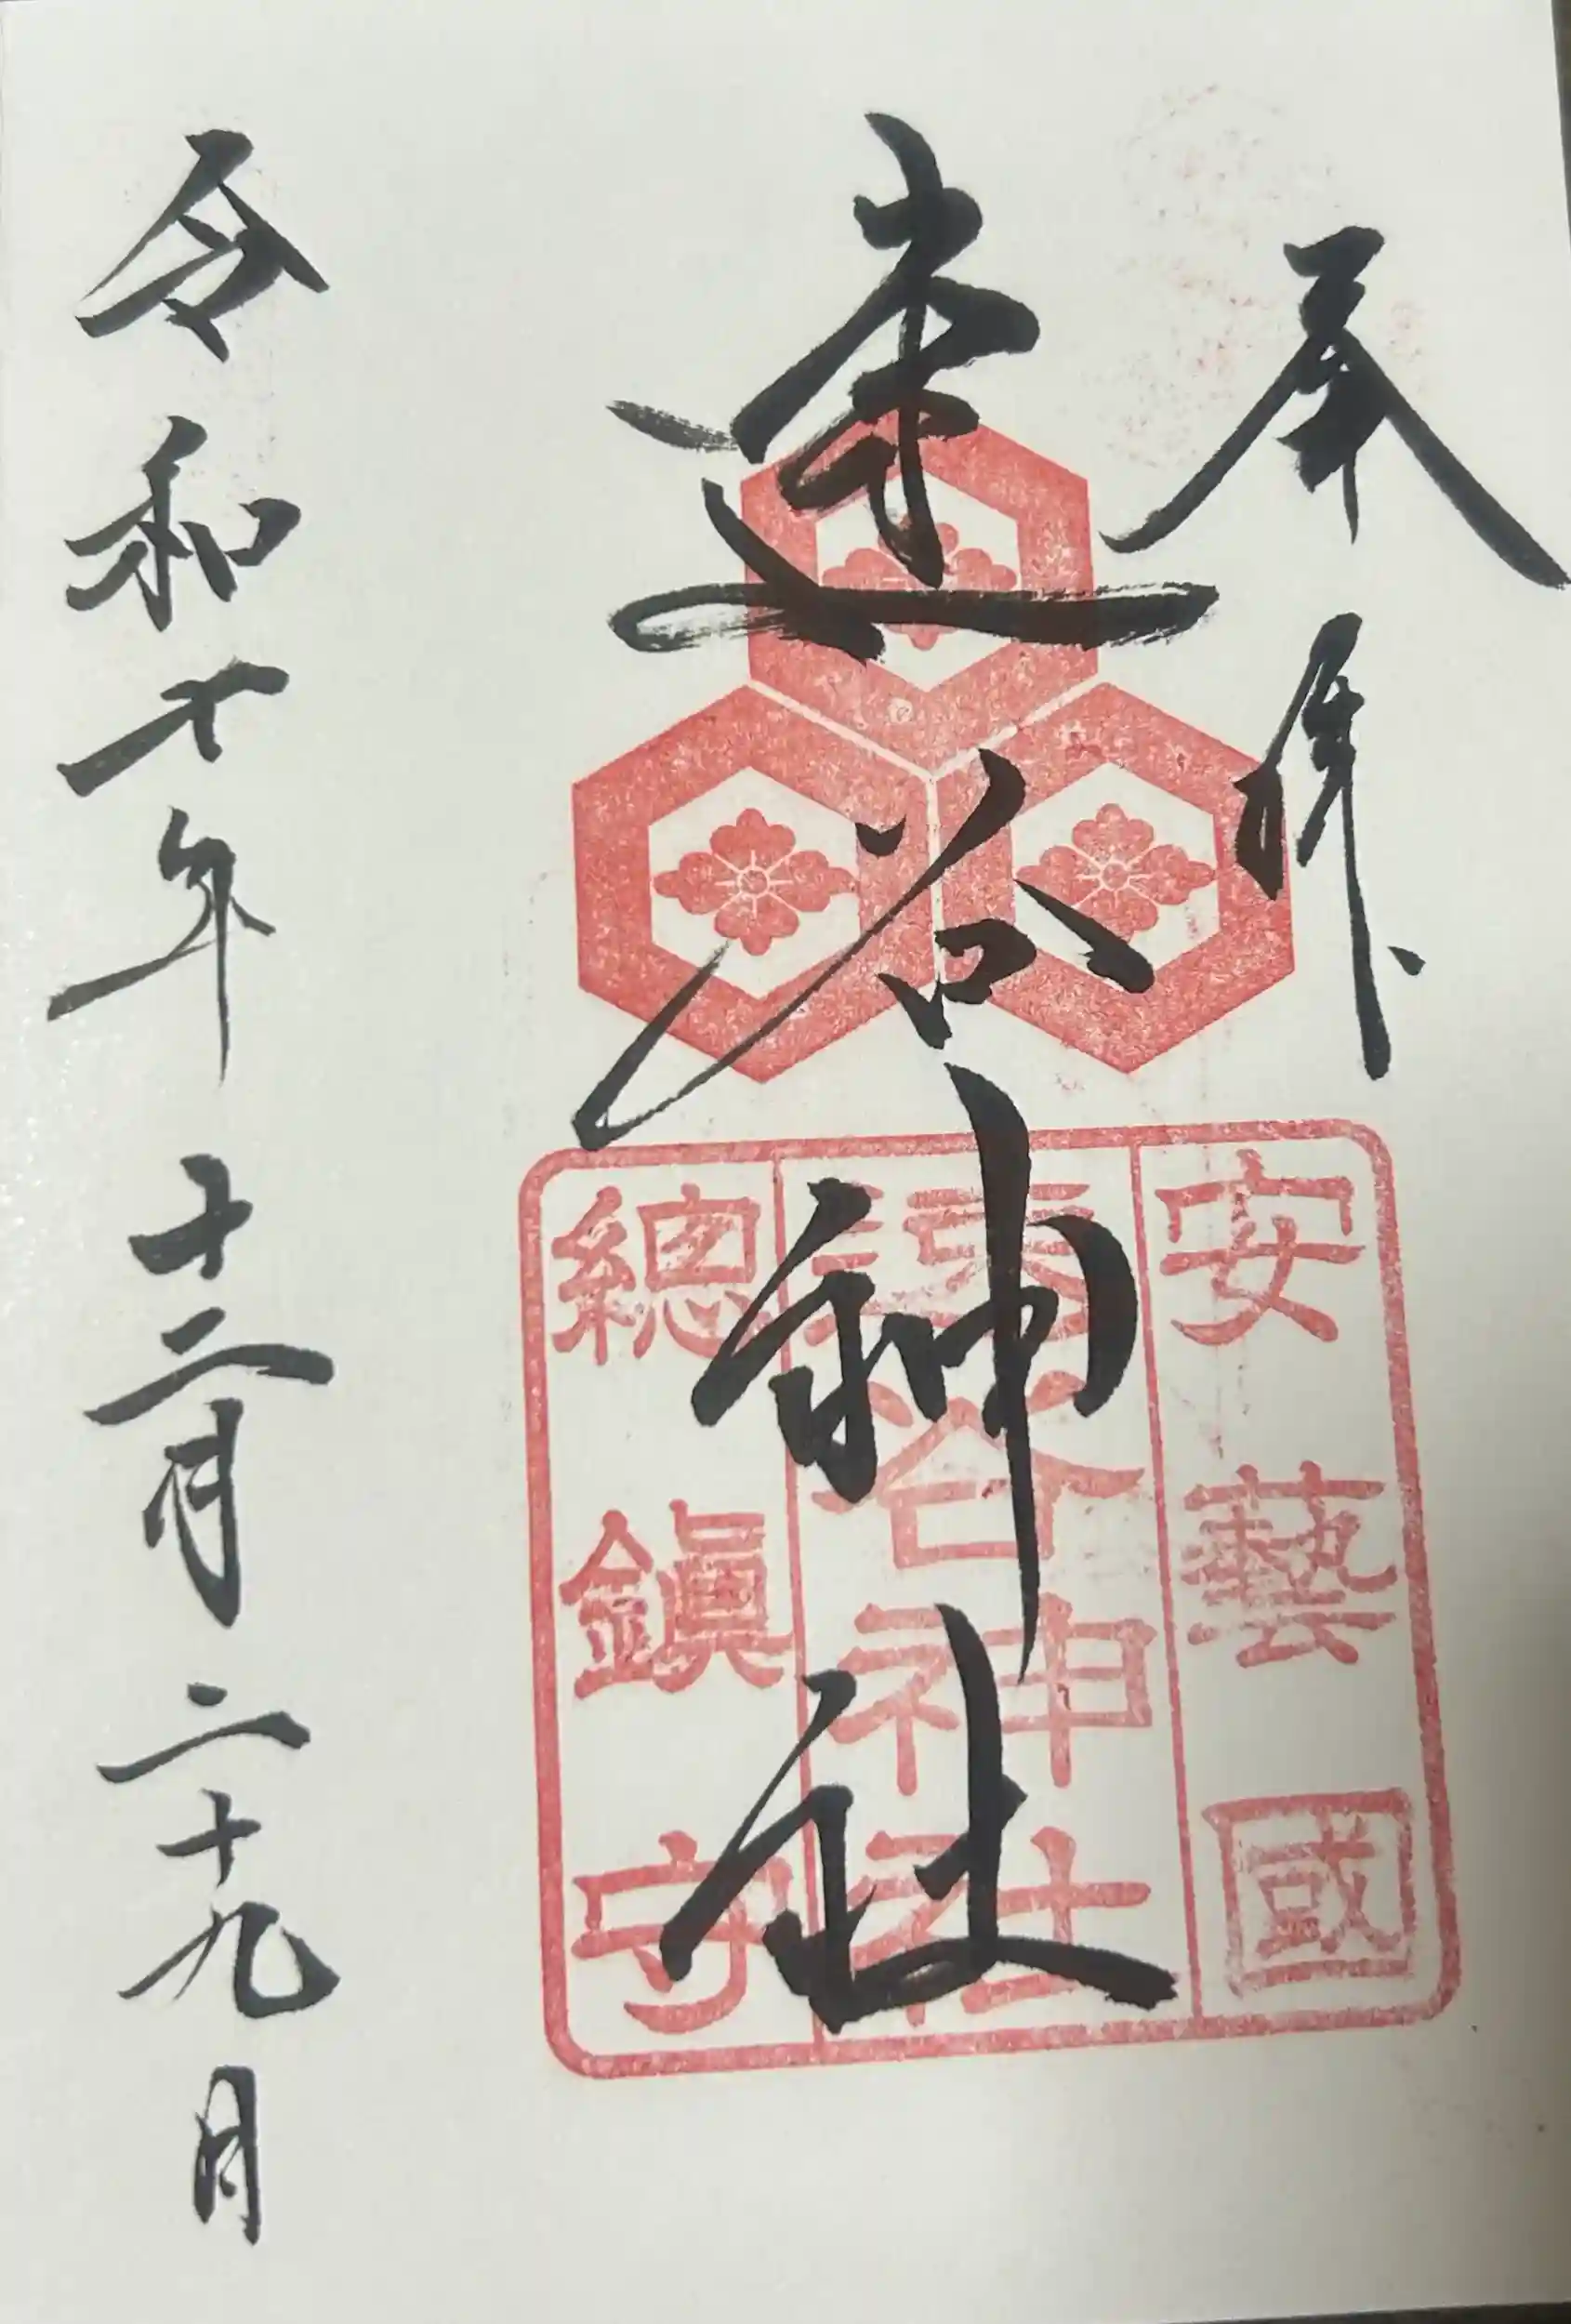 奉拝
速谷神社
令和七年十二月二十九日
安藝國
速谷神社
總鎭守